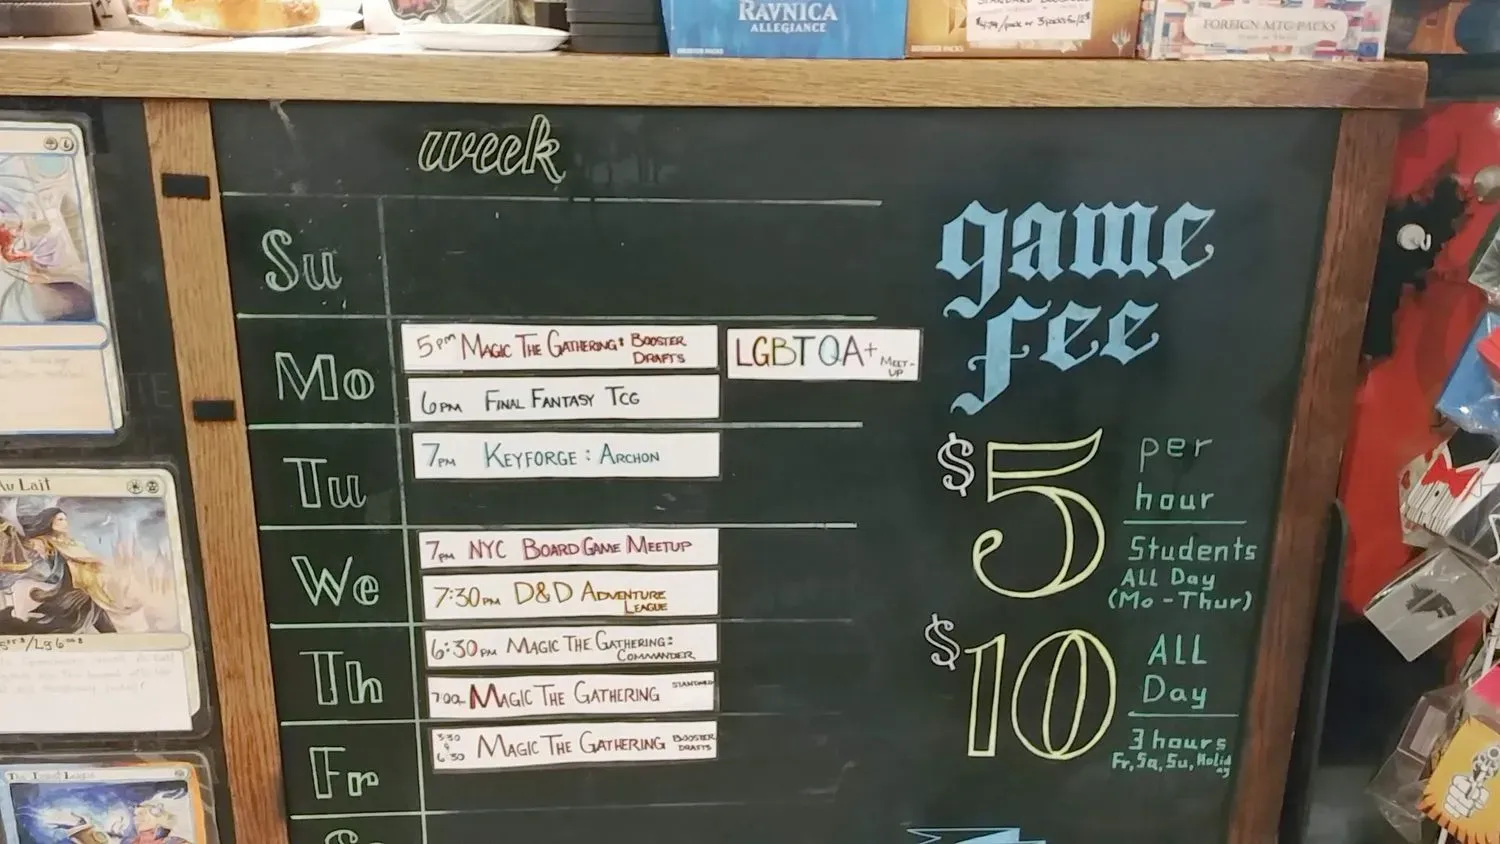 RAVNICA
ALLEGIANCE
BOOSTER PACKS
BOOSTER PACKS
FOREIGN MTG PACKS
week
Su
Mo
5pm MAGIC THE GATHERING: BOOSTER
DRAFTS
LGBTQA+ MEET-
UP
6PM FINAL FANTASY TCG
Tu
7PM KEYFORGE: ARCHON
We
7PM NYC BOARD GAME MEETUP
7:30PM D&D ADVENTURE
LEAGUE
Th
6:30PM MAGIC THE GATHERING:
COMMANDER
7:00 MAGIC THE GATHERING STANDARD
Fr
3:30
&
6:30
MAGIC THE GATHERING BOOSTER
DRAFTS
game
fee
$5 per
hour
Students
ALL Day
(Mo-Thur)
$10 ALL
Day
3 hours
Fr, Sa, Su, Holid
ay
Au Lait